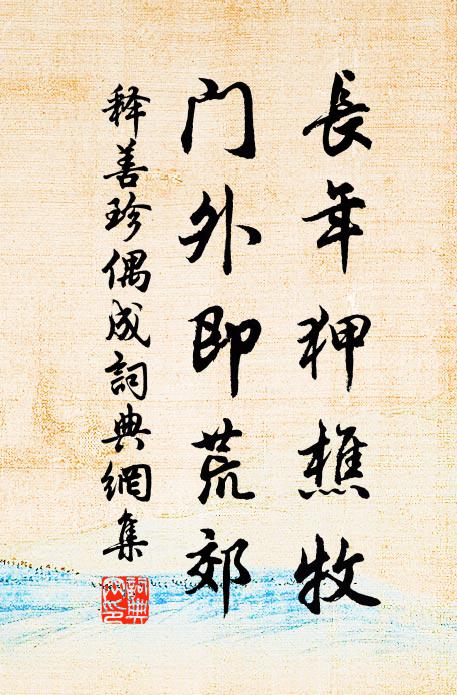 長年狎樵牧
门外即荒郊
释善珍偶成詞典網集